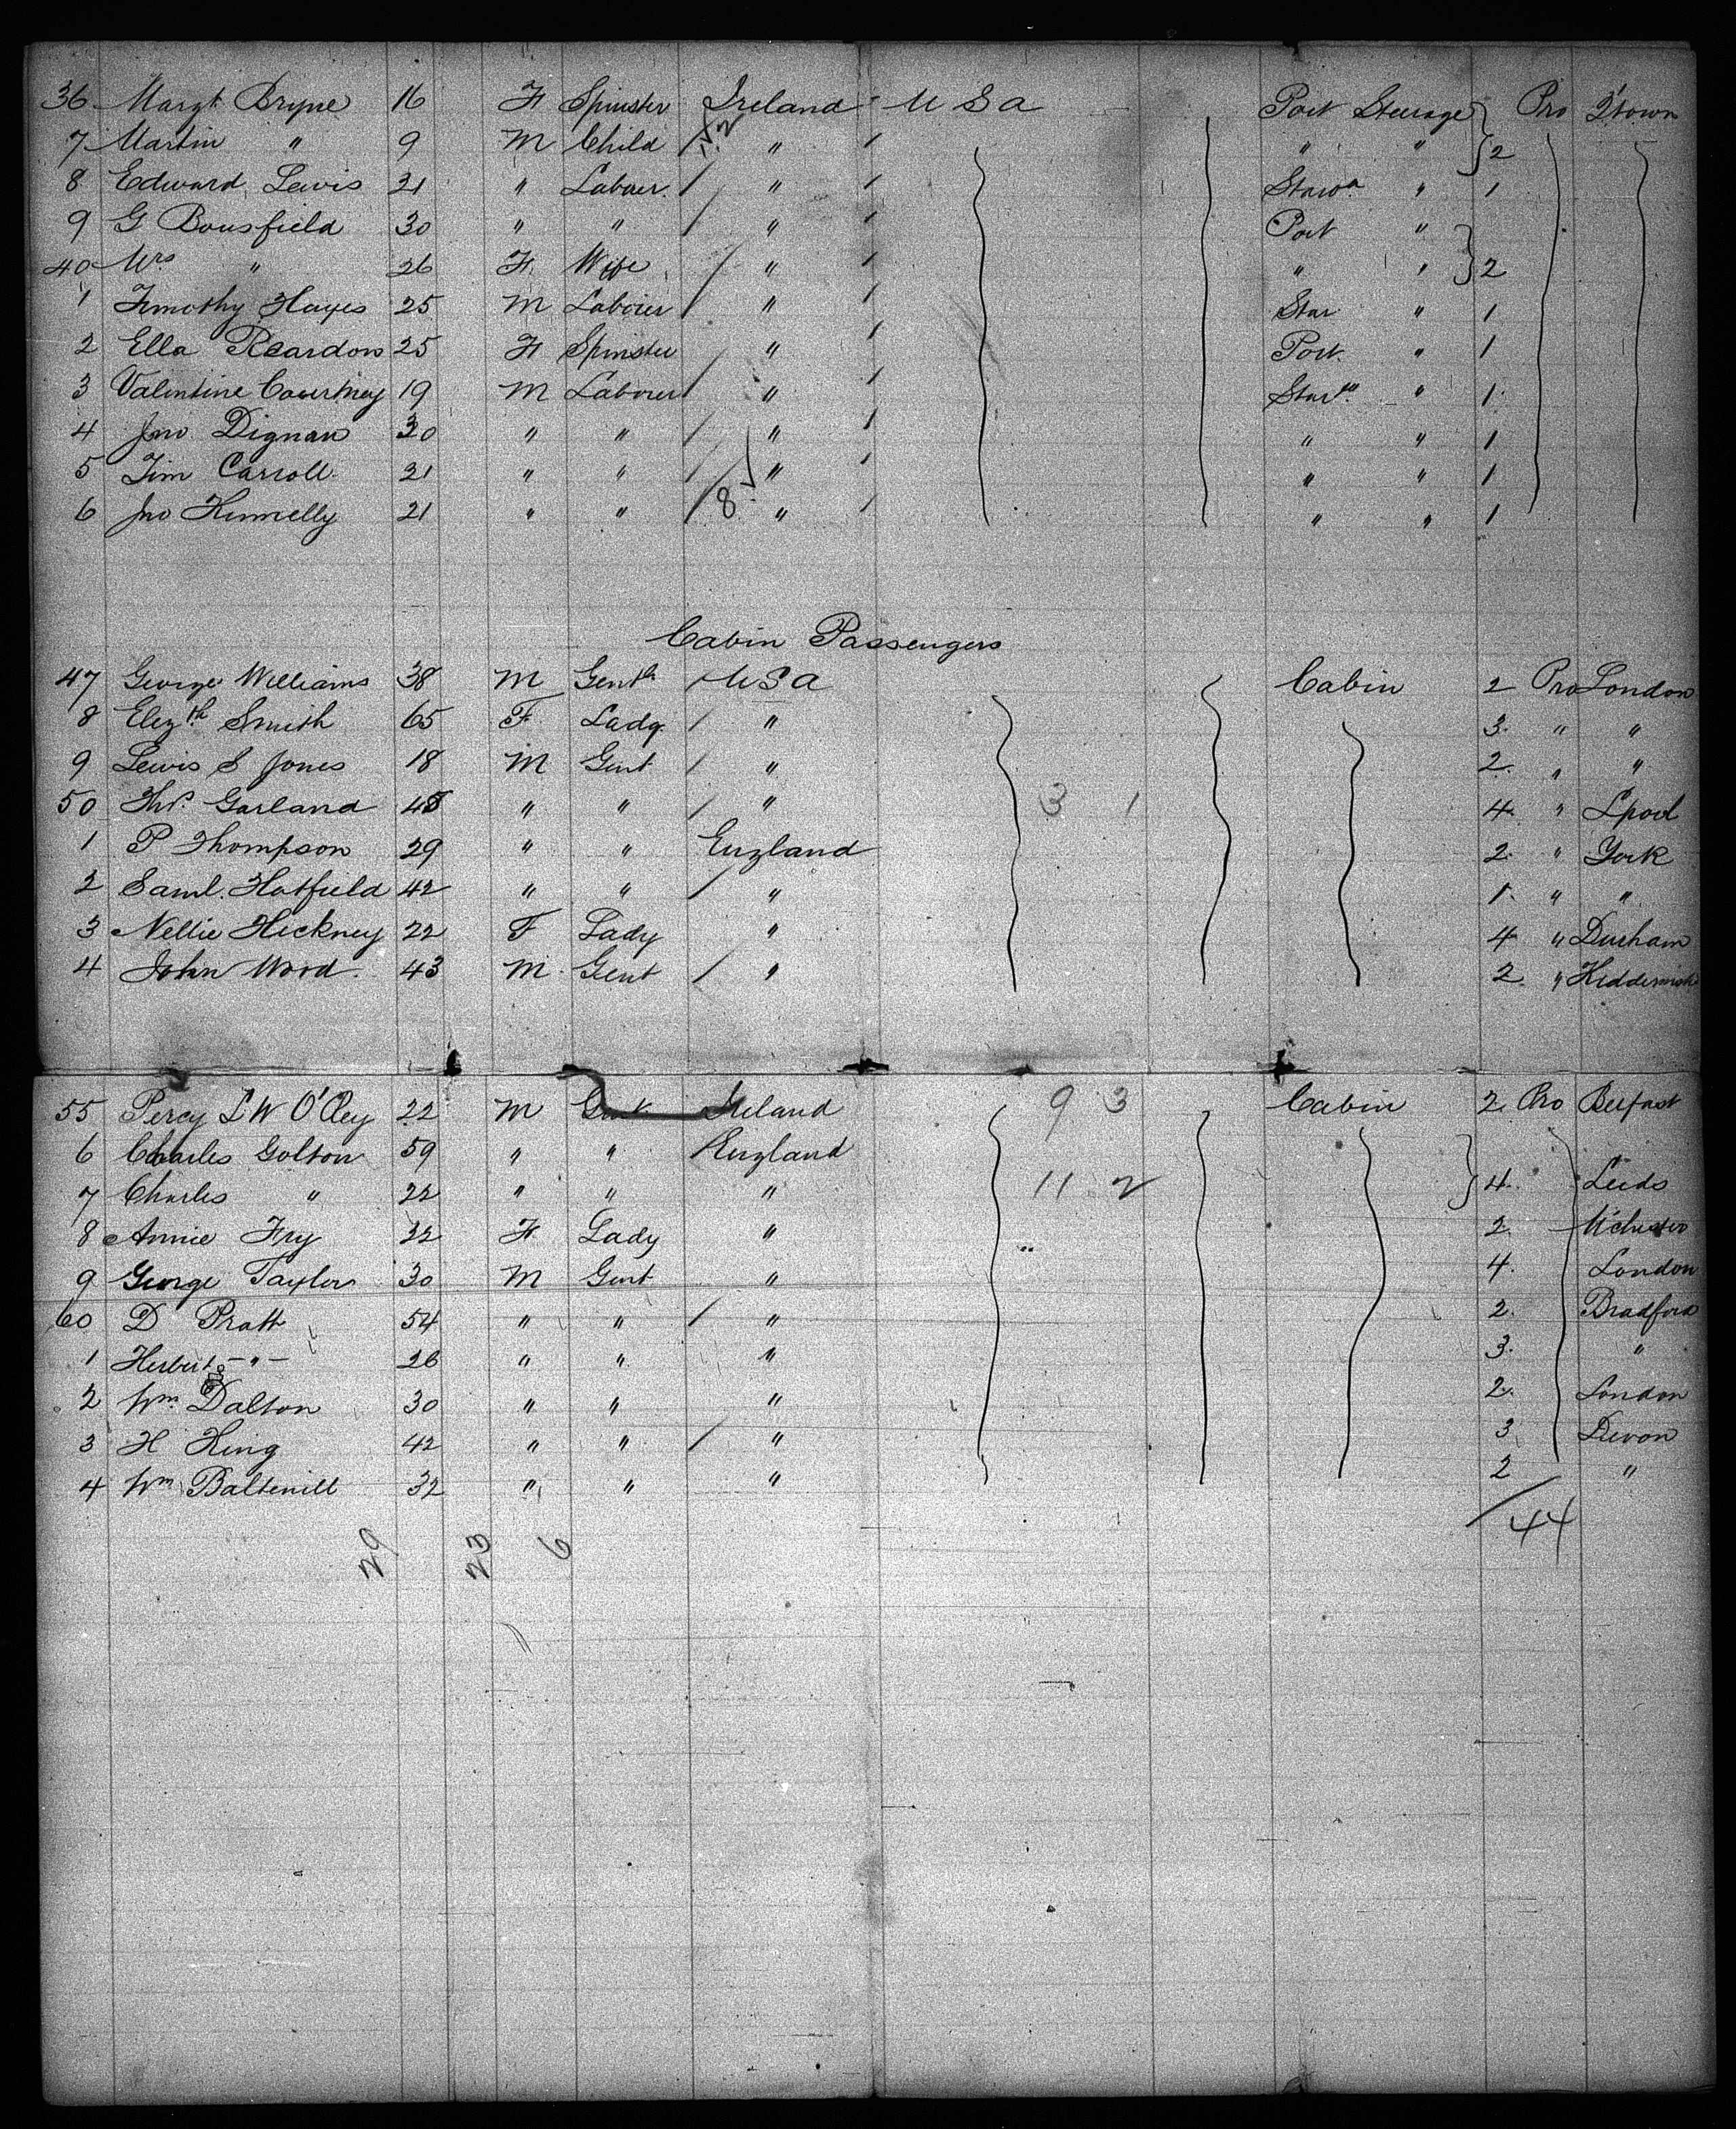 36 Margt. Bryne 16 F Spinster Ireland U S A Port Steerage Pro Q'town
7 Martin " 9 M Child " " " 2
8 Edward Lewis 21 " Laborer " " 1
9 G Bousfield 30 " " " Port "
40 Mrs " 26 F. Wife " " " 2
1 Timothy Hayes 25 M Laborer " Star " 1
2 Ella Reardon 25 F Spinster " Port. " 1
3 Valentine Courtney 19 M Laborer " " 1
4 Jno Dignan 30 " " " " " 1
5 Tim Carroll. 21 " " " " " 1
6 Jno Kennelly 21 " " 8 " " " 1
Cabin Passengers
47 George Williams 38 M U S A Cabin 2 Pro London
8 Elizth Smith 65 F Lady " 3. " "
9 Lewis S Jones 18 M Gent " 2. " "
50 Thos. Garland 48 " " " 3 1 4. " Lpool
1 P Thompson 29 " " England 2. " York
2 Saml. Hatfield 42 " " " 1. " "
3 Nellie Hickney 22 F Lady " 4 " Durham
4 John Wood. 43 M. Gent " 2. "
55 Percy L W O'Rey 22 M Gent Ireland 9 3 Cabin 2. Pro Belfast
6 Charles Golton 59 " " England
7 Charles " 22 " " " 11 2 4. Leeds
8 Annie Fry 22 F Lady " 2. M'chester
9 George Taylor 30 M Gent " 4. London
60 D Pratt 54 " " " 2. Bradford
1 Herbert - " - 26 " " " 3. "
2 Wm. Dalton 30 " " " 2. London
3 H King 42 " " " 3 Devon
4 Wm 32 " " " 2 "
44
29 23 6